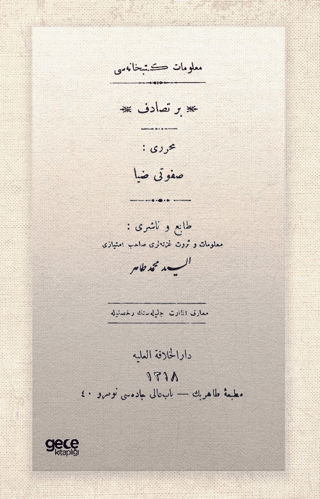 معلومات كتبخانه‌سی
بر تصادف
محرری :
صفوتی ضیا
طابع و ناشری :
معلومات و ثروت غزته‌لری صاحب امتیازی
السید محمد طاهر
معارف نظارت جلیله‌سنك رخصتیله
دار الخلافة العلیه
١٣١٨
مطبعهٔ طاهر بك — باب عالی جاده‌سی نومرو ٤٠
gece
kitaplığı